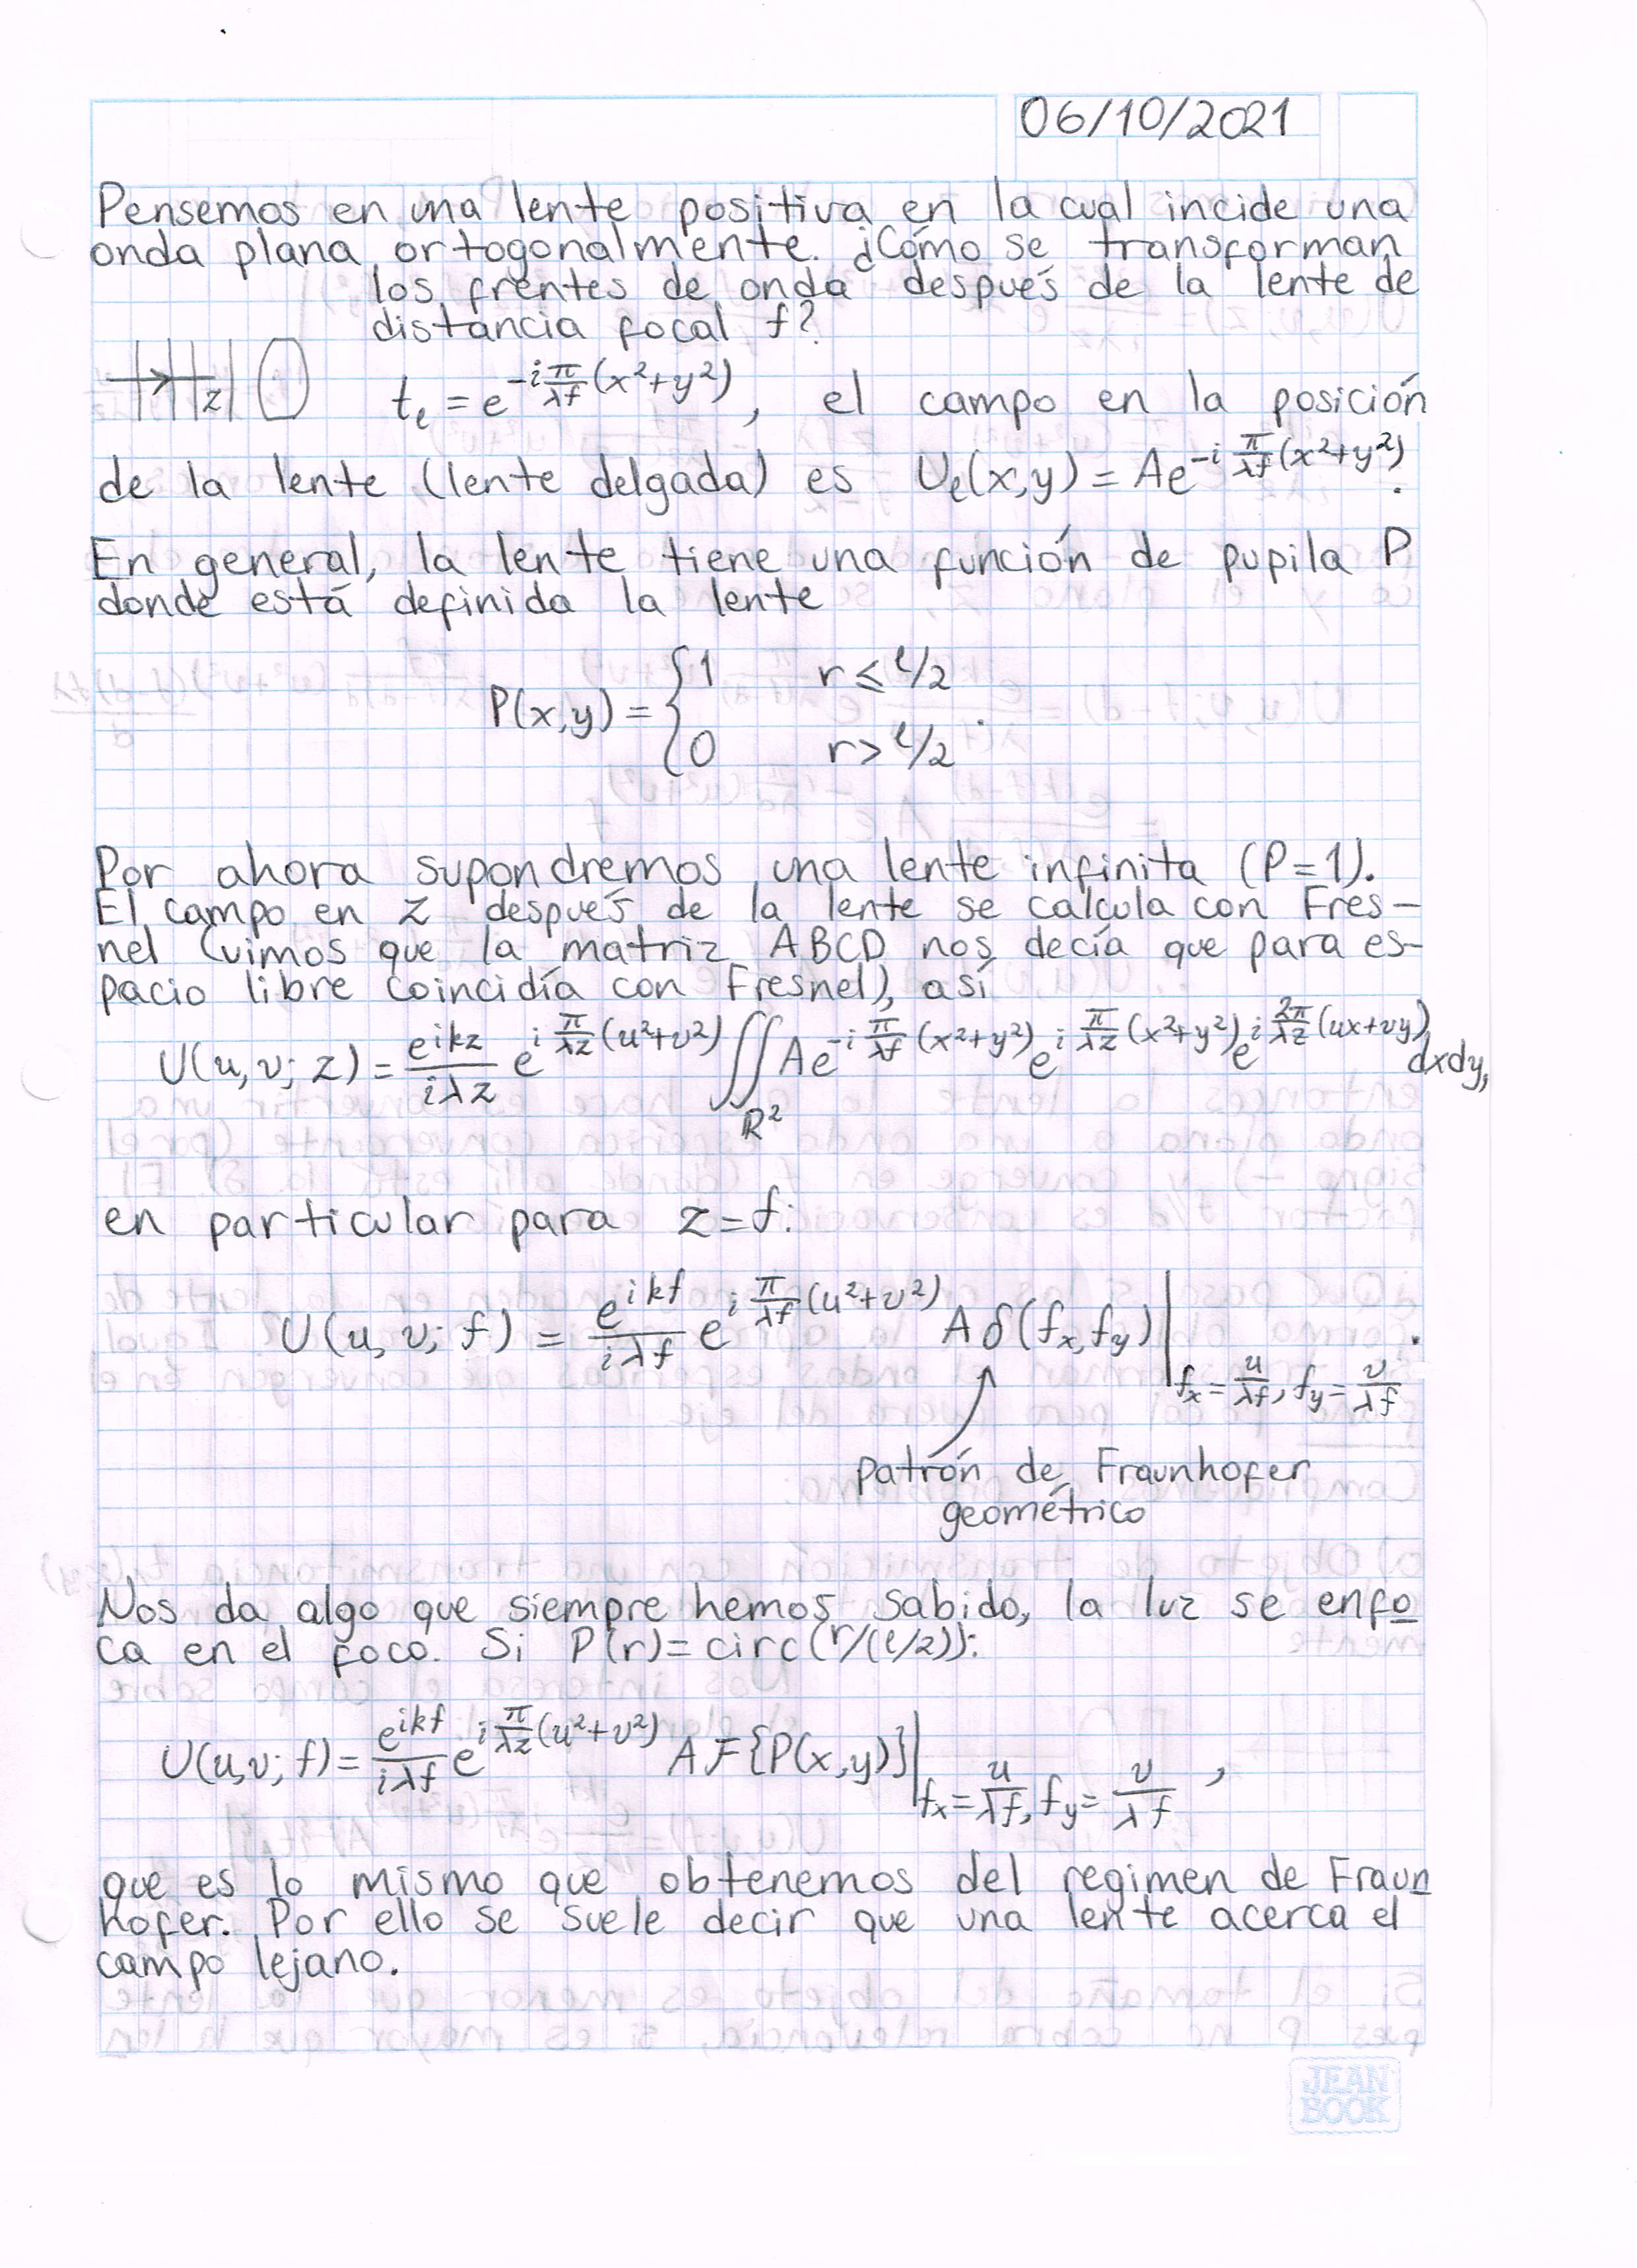 06/10/2021
Pensemos en una lente positiva en la cual incide una
onda plana ortogonalmente. ¿Cómo se transforman
los frentes de onda después de la lente de
distancia focal f?
z
t_ℓ = e^{-i\frac{π}{λf}(x²+y²)}, el campo en la posición
de la lente (lente delgada) es U_ℓ(x,y) = Ae^{-i\frac{π}{λf}(x²+y²)}.
En general, la lente tiene una función de pupila P
donde está definida la lente
P(x,y) = { 1 r ≤ ℓ/2
0 r > ℓ/2 .
Por ahora supondremos una lente infinita (P=1).
El campo en z después de la lente se calcula con Fres-
nel (vimos que la matriz ABCD nos decía que para es-
pacio libre coincidía con Fresnel), así
U(u,v; z) = \frac{e^{ikz}}{iλz} e^{i\frac{π}{λz}(u²+v²)} ∬_{R²} Ae^{-i\frac{π}{λf}(x²+y²)} e^{i\frac{π}{λz}(x²+y²)} e^{i\frac{2π}{λz}(ux+vy)} dxdy,
en particular para z=f:
U(u,v; f) = \frac{e^{ikf}}{iλf} e^{i\frac{π}{λf}(u²+v²)} A δ(f_x,f_y)|_{f_x=\frac{u}{λf}, f_y=\frac{v}{λf}}.
patrón de Fraunhofer
geométrico
Nos da algo que siempre hemos sabido, la luz se enfo
ca en el foco. Si P(r)=circ(r/(ℓ/2)):
U(u,v; f)= \frac{e^{ikf}}{iλf} e^{i\frac{π}{λz}(u²+v²)} A F{P(x,y)}|_{f_x=\frac{u}{λf}, f_y=\frac{v}{λf}},
que es lo mismo que obtenemos del regimen de Fraun
hofer. Por ello se suele decir que una lente acerca el
campo lejano.
JEAN
BOOK